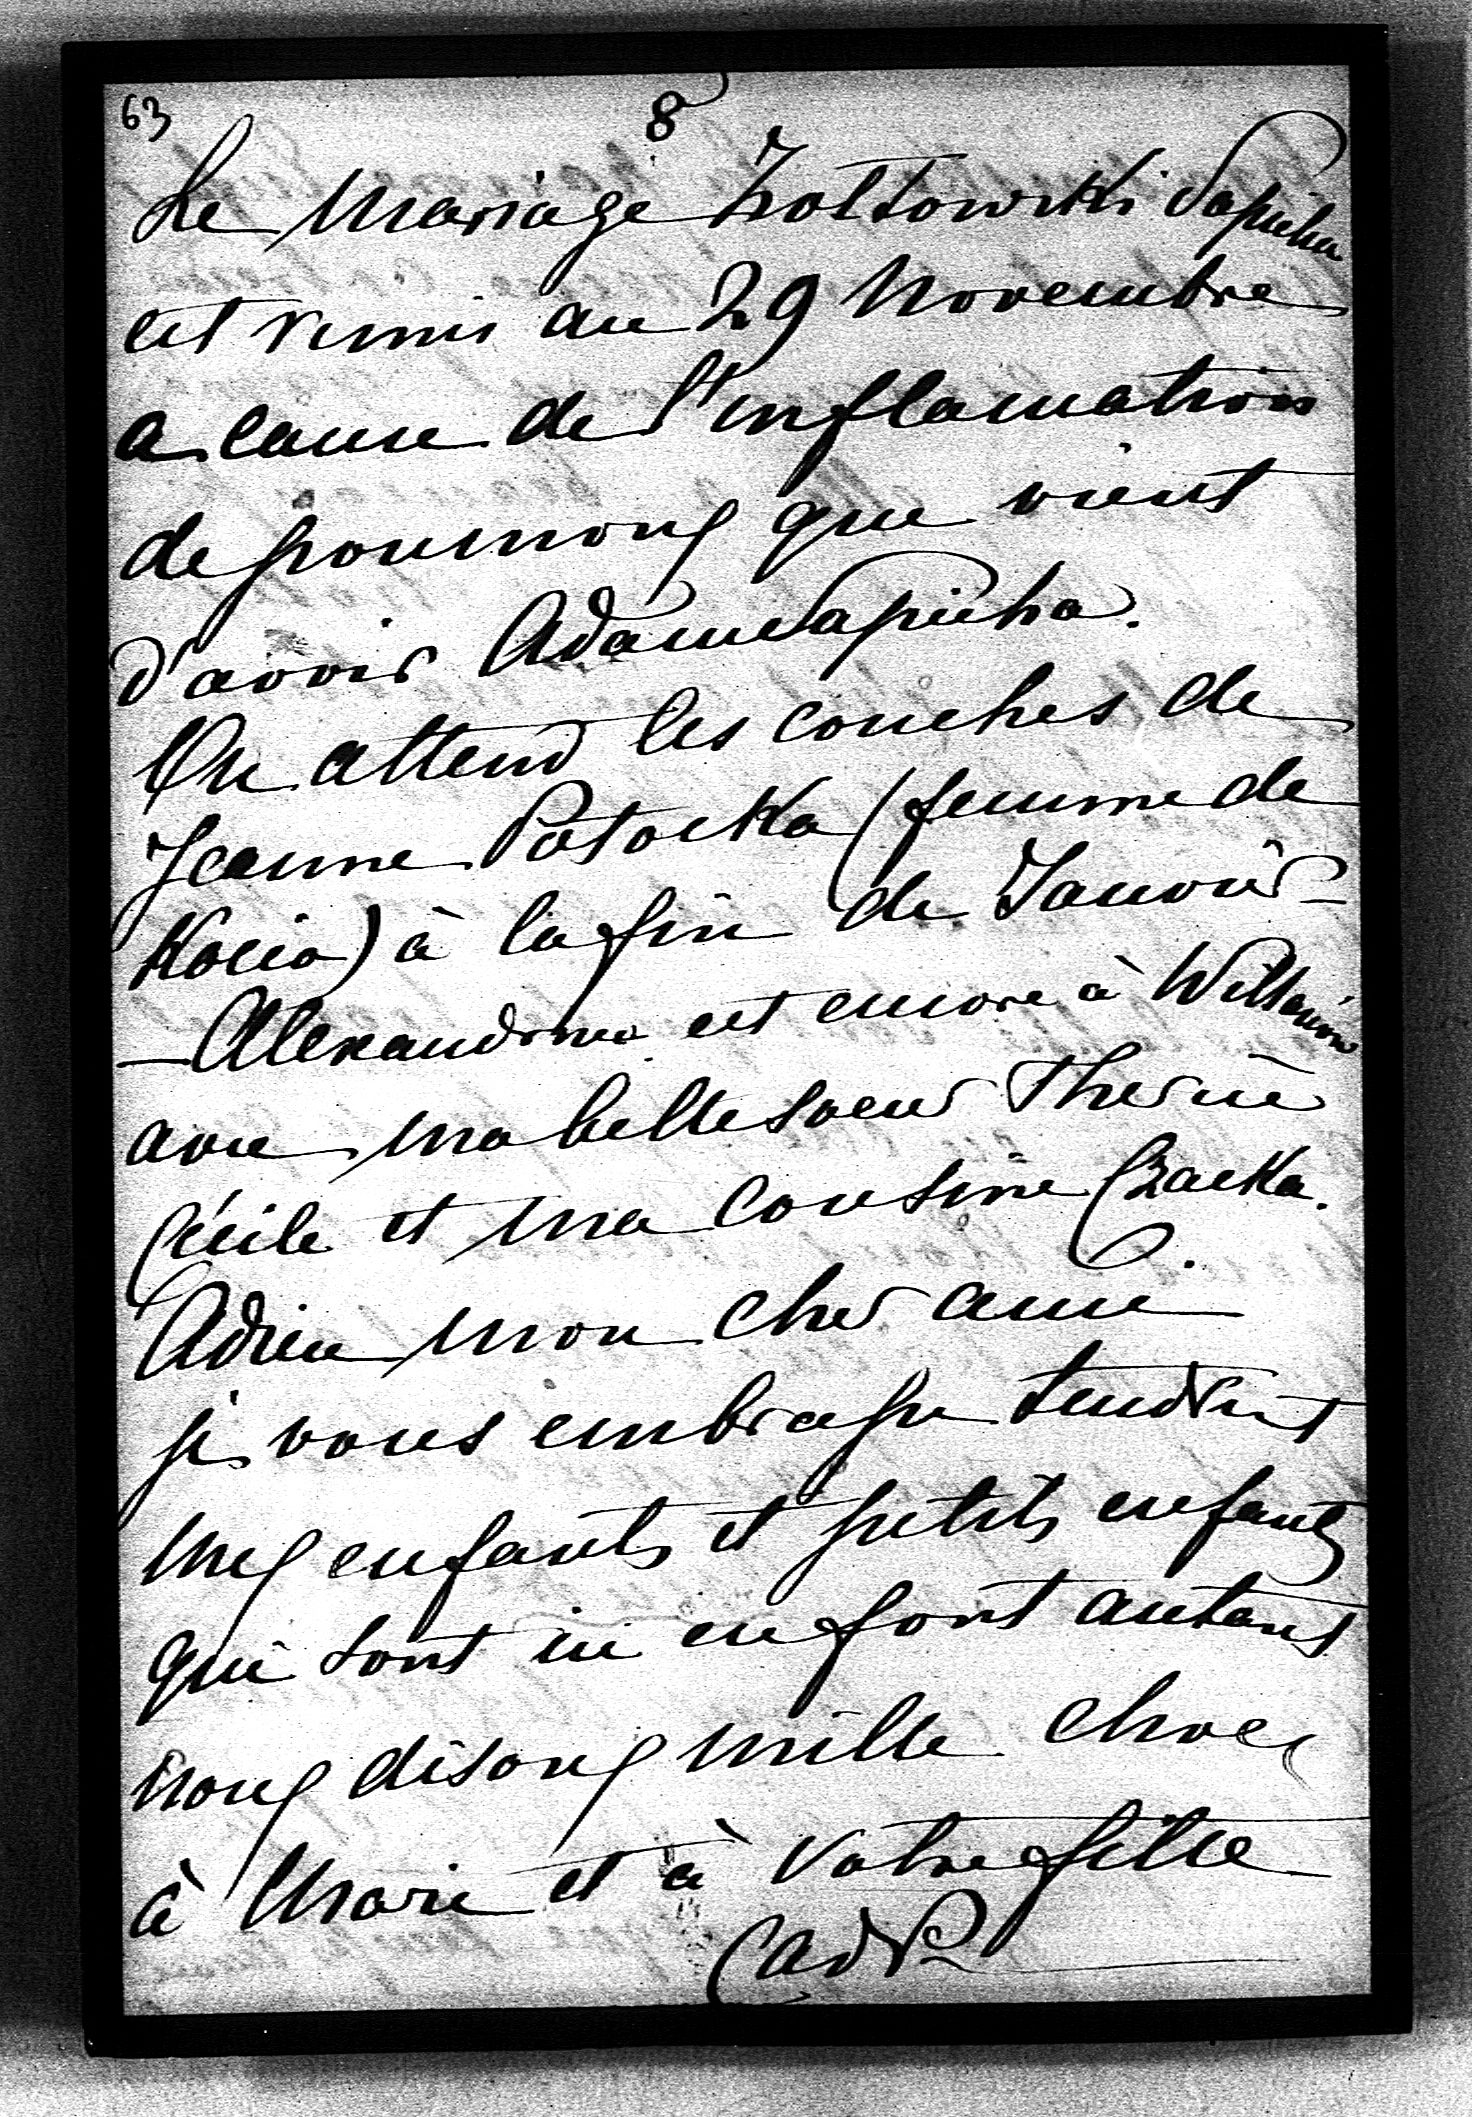 63
8
Le Mariage Zoltowski Sapieha
est remis au 29 Novembre
a cause de l'inflamation
de poumons que vient
d'avoir Adam Sapieha.
On attend les couches de
Jeanne Potocka (femme de
Kocio) à la fin de Janvier –
– Alexandrine est encore à Willanow
avec ma belle soeur Therese
Cécile et ma cousine Czacka.
Adieu mon cher ami
je vous embrasse tendremt
mes enfants et petits enfants
qui sont ici en font autant
nous disons mille choses
à Marie et à votre fille